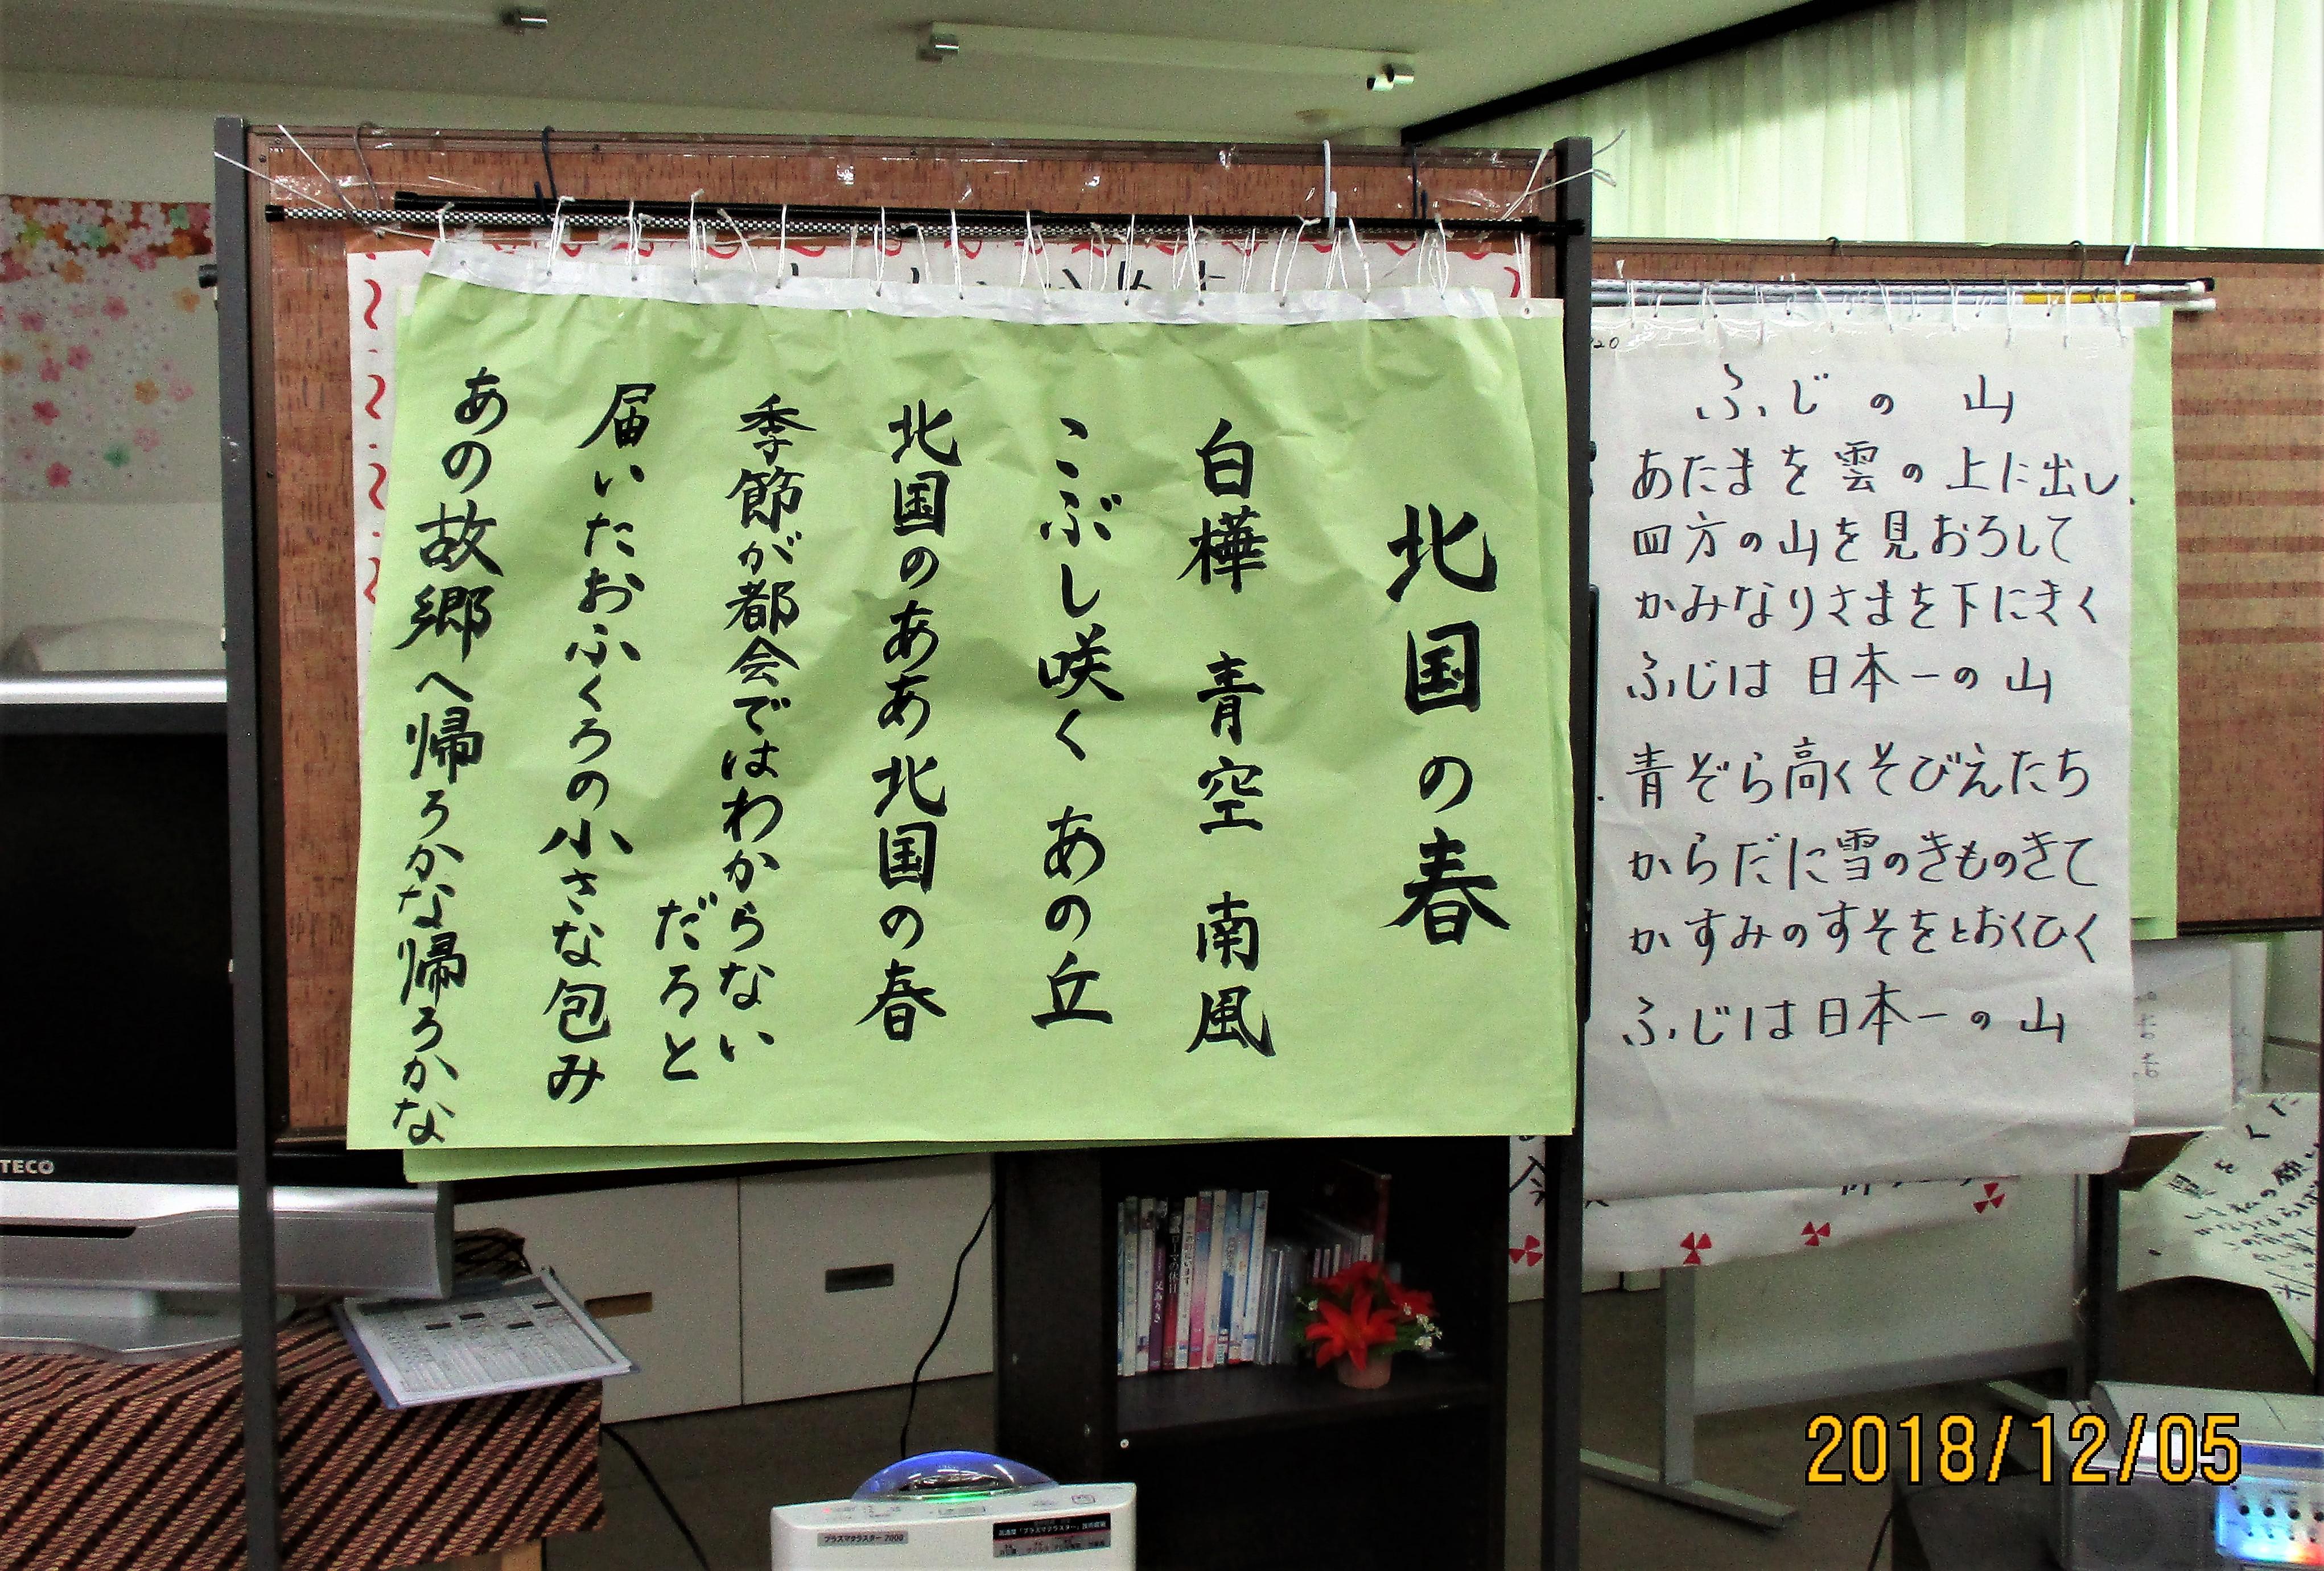 北国の春
白樺　青空　南風
こぶし咲く　あの丘
北国のああ北国の春
季節が都会ではわからない
だろと
届いたおふくろの小さな包み
あの故郷へ帰ろかな帰ろかな
ふじの山
あたまを雲の上に出し
四方の山を見おろして
かみなりさまを下にきく
ふじは日本一の山
青ぞら高くそびえたち
からだに雪のきものきて
かすみのすそをとおくひく
ふじは日本一の山
TECO
ローマの休日
父ありき
プラズマクラスター 7000
2018/12/05